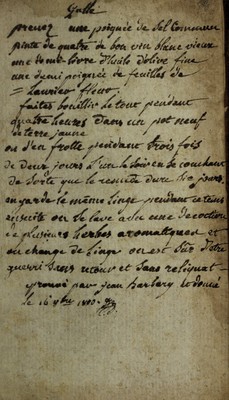 Galle
prenez une poignée de sel Commun
pinte de quatre de bon vin blanc vieux
une demi livre d'huile d'olive fine
une demi poignée de feuilles de
= laurier fleur,
faites bouillir le tout pendant
quatre heures dans un pot neuf
de terre jaune
on s'en frotte pendant trois fois
de deux jours a l'un le soir en se couchant
de sorte que le remede dure six jours.
on garde le même linge pendant ce tems
ensuite on se lave avec une decoction
de plusieurs herbes aromatiques et
on change de linge on est sur d'etre
gueri sans retour et sans reliquat
prouvé par jean
le 16 1803.